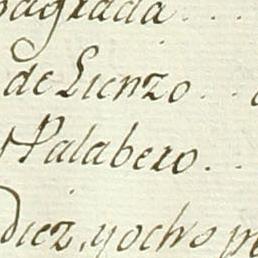 sagrada...
de Lienzo..
Palabero..
Diez, y ocho pe